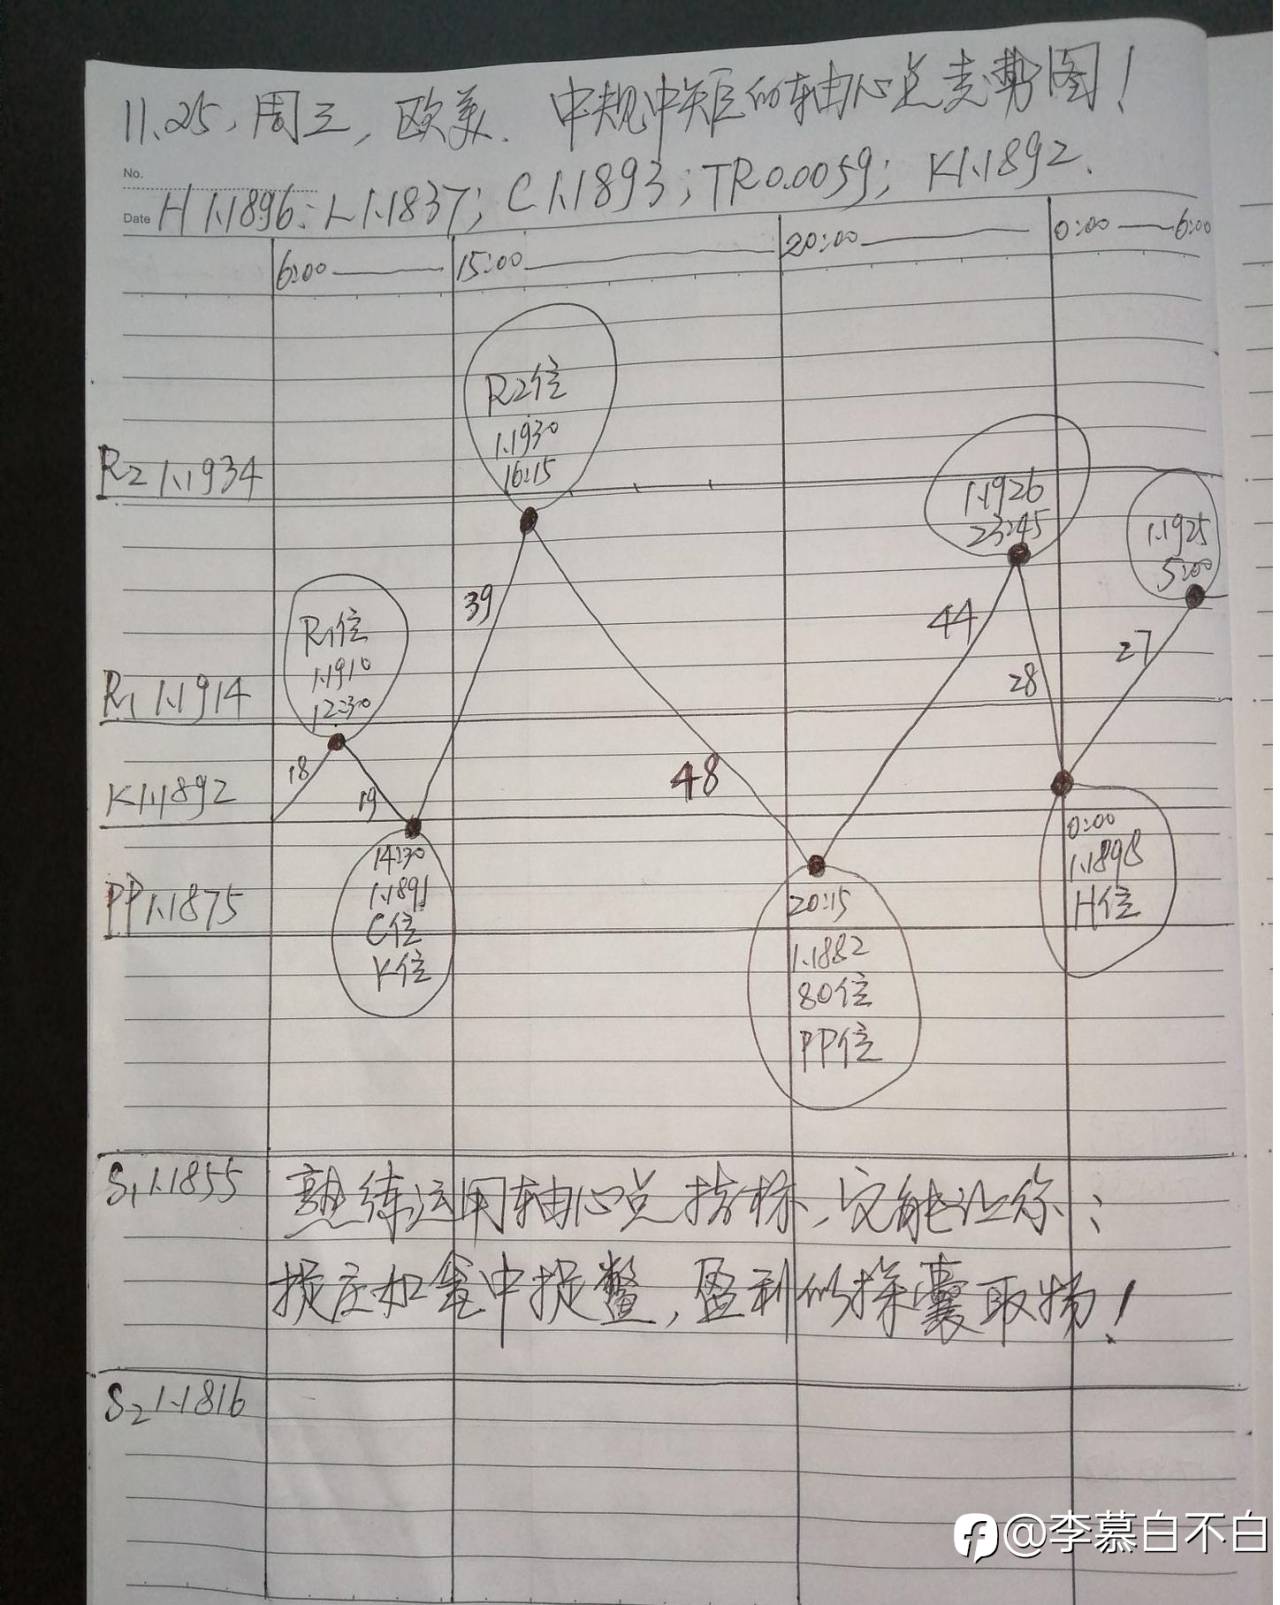 11.25，周三，欧美．中规中矩的轴心点走势图！
No.
Date H 1.1896；L 1.1837；C 1.1893；TR 0.0059；K 1.1892．
6:00 15:00 20:00 0:00 6:00
R2位
1.1930
16:15
R2 1.1934
1.1926
23:45
1.1925
5:00
39
R1位
1.1910
12:30
44
27
28
R1 1.1914
18
19
48
K 1.1892
14:30
1.1891
C位
K位
0:00
1.1898
H位
PP 1.1875
20:15
1.1882
80位
PP位
S1 1.1855
熟练运用轴心点指标，定能让你：
捉庄如瓮中捉鳖，盈利似探囊取物！
S2 1.1816
@李慕白不白